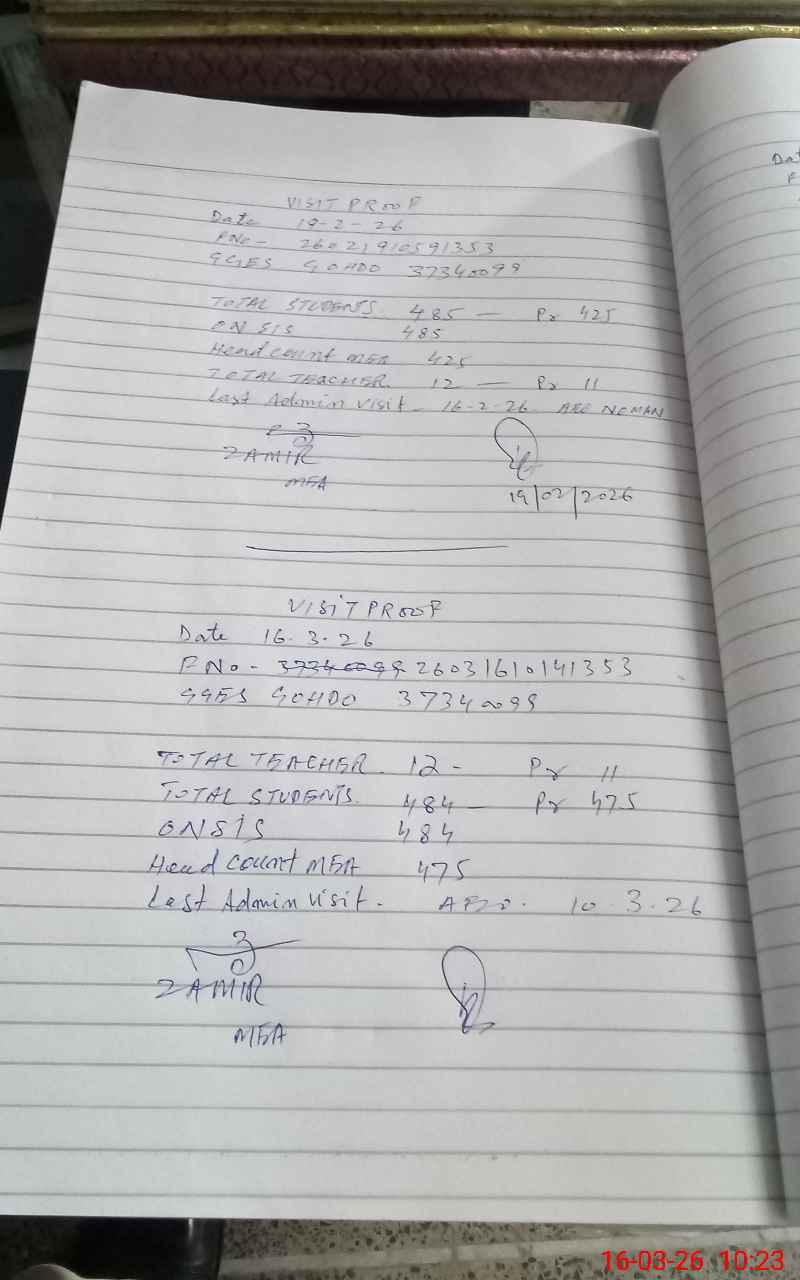 VISIT PROOF
Date 19-2-26
FNo- 26021910591353
GGES GOHDO 37340099
TOTAL STUDENTS. 485 — Pr 425
ON SIS 485
Head count MEA 425
TOTAL TEACHER. 12 — Pr 11
Last Admin visit - 16-2-26 AEO NOMAN
ZAMIR
MEA
19/02/2026
VISIT PROOF
Date 16.3.26
FNo- 37340099 26031610141353
GGES GOHDO 37340099
TOTAL TEACHER. 12 - Pr 11
TOTAL STUDENTS. 484 — Pr 475
ON SIS 484
Head count MEA 475
Last Admin Visit. AEO. 10.3.26
ZAMIR
MEA
Dat
F
16-03-26 10:23